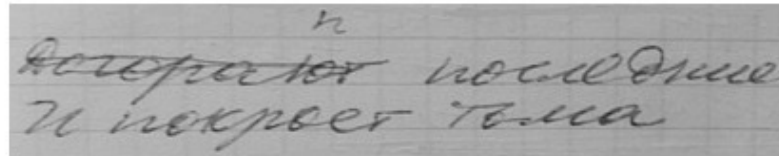 п
Догорают последние
и покроет тьма